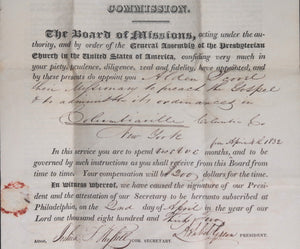 COMMISSION.
The Board of Missions, acting under the au-
thority, and by order of the General Assembly of the Presbyterian
Church in the United States of America, confiding very much in
your piety, prudence, diligence, zeal and fidelity, have appointed, and
by these presents do appoint you Alden
their Missionary to preach the Gospel
& to administer its ordinances in
Columbiaville Columbia Co
New York
for April 1832
In this service you are to spend twelve months, and to be
governed by such instructions as you shall receive from this Board
from time to time. Your compensation will be $200
dollars for the time.
In witness whereof, we have caused the signature of our Presi-
dent and the attestation of our Secretary to be hereunto subscribed at
Philadelphia, on the day of April in the year of our
Lord one thousand eight hundred and Thirty Two
PRESIDENT.
Attest, COR. SECRETARY.